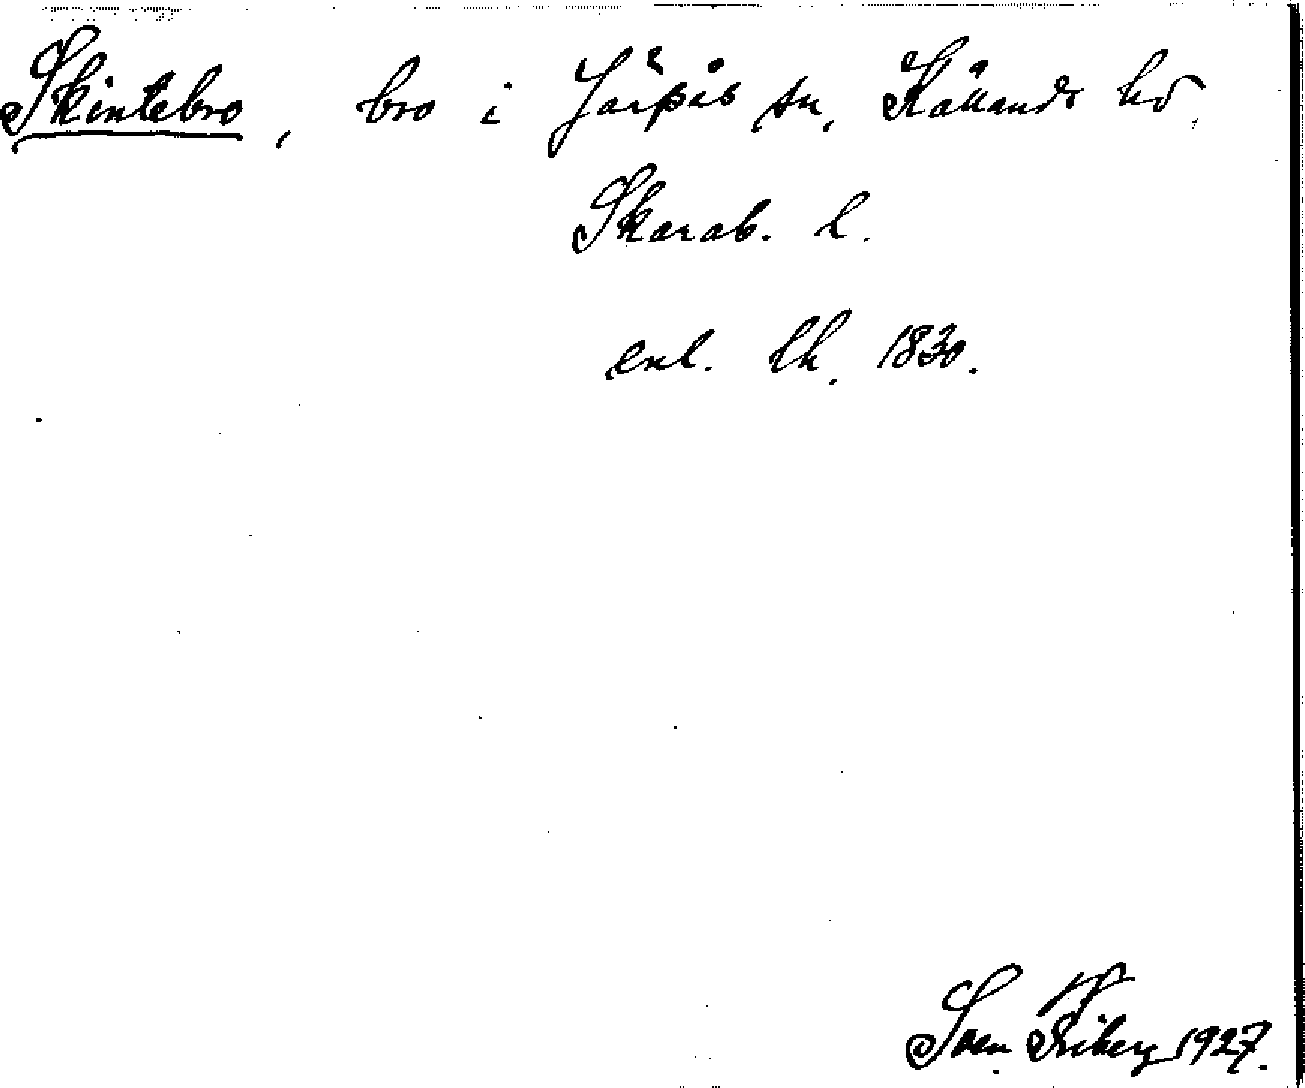 Skintebro, bro i Järpås sn, Kållands hd,
Skarab. l.
enl. lh. 1830.
Sven Friberg 1927.